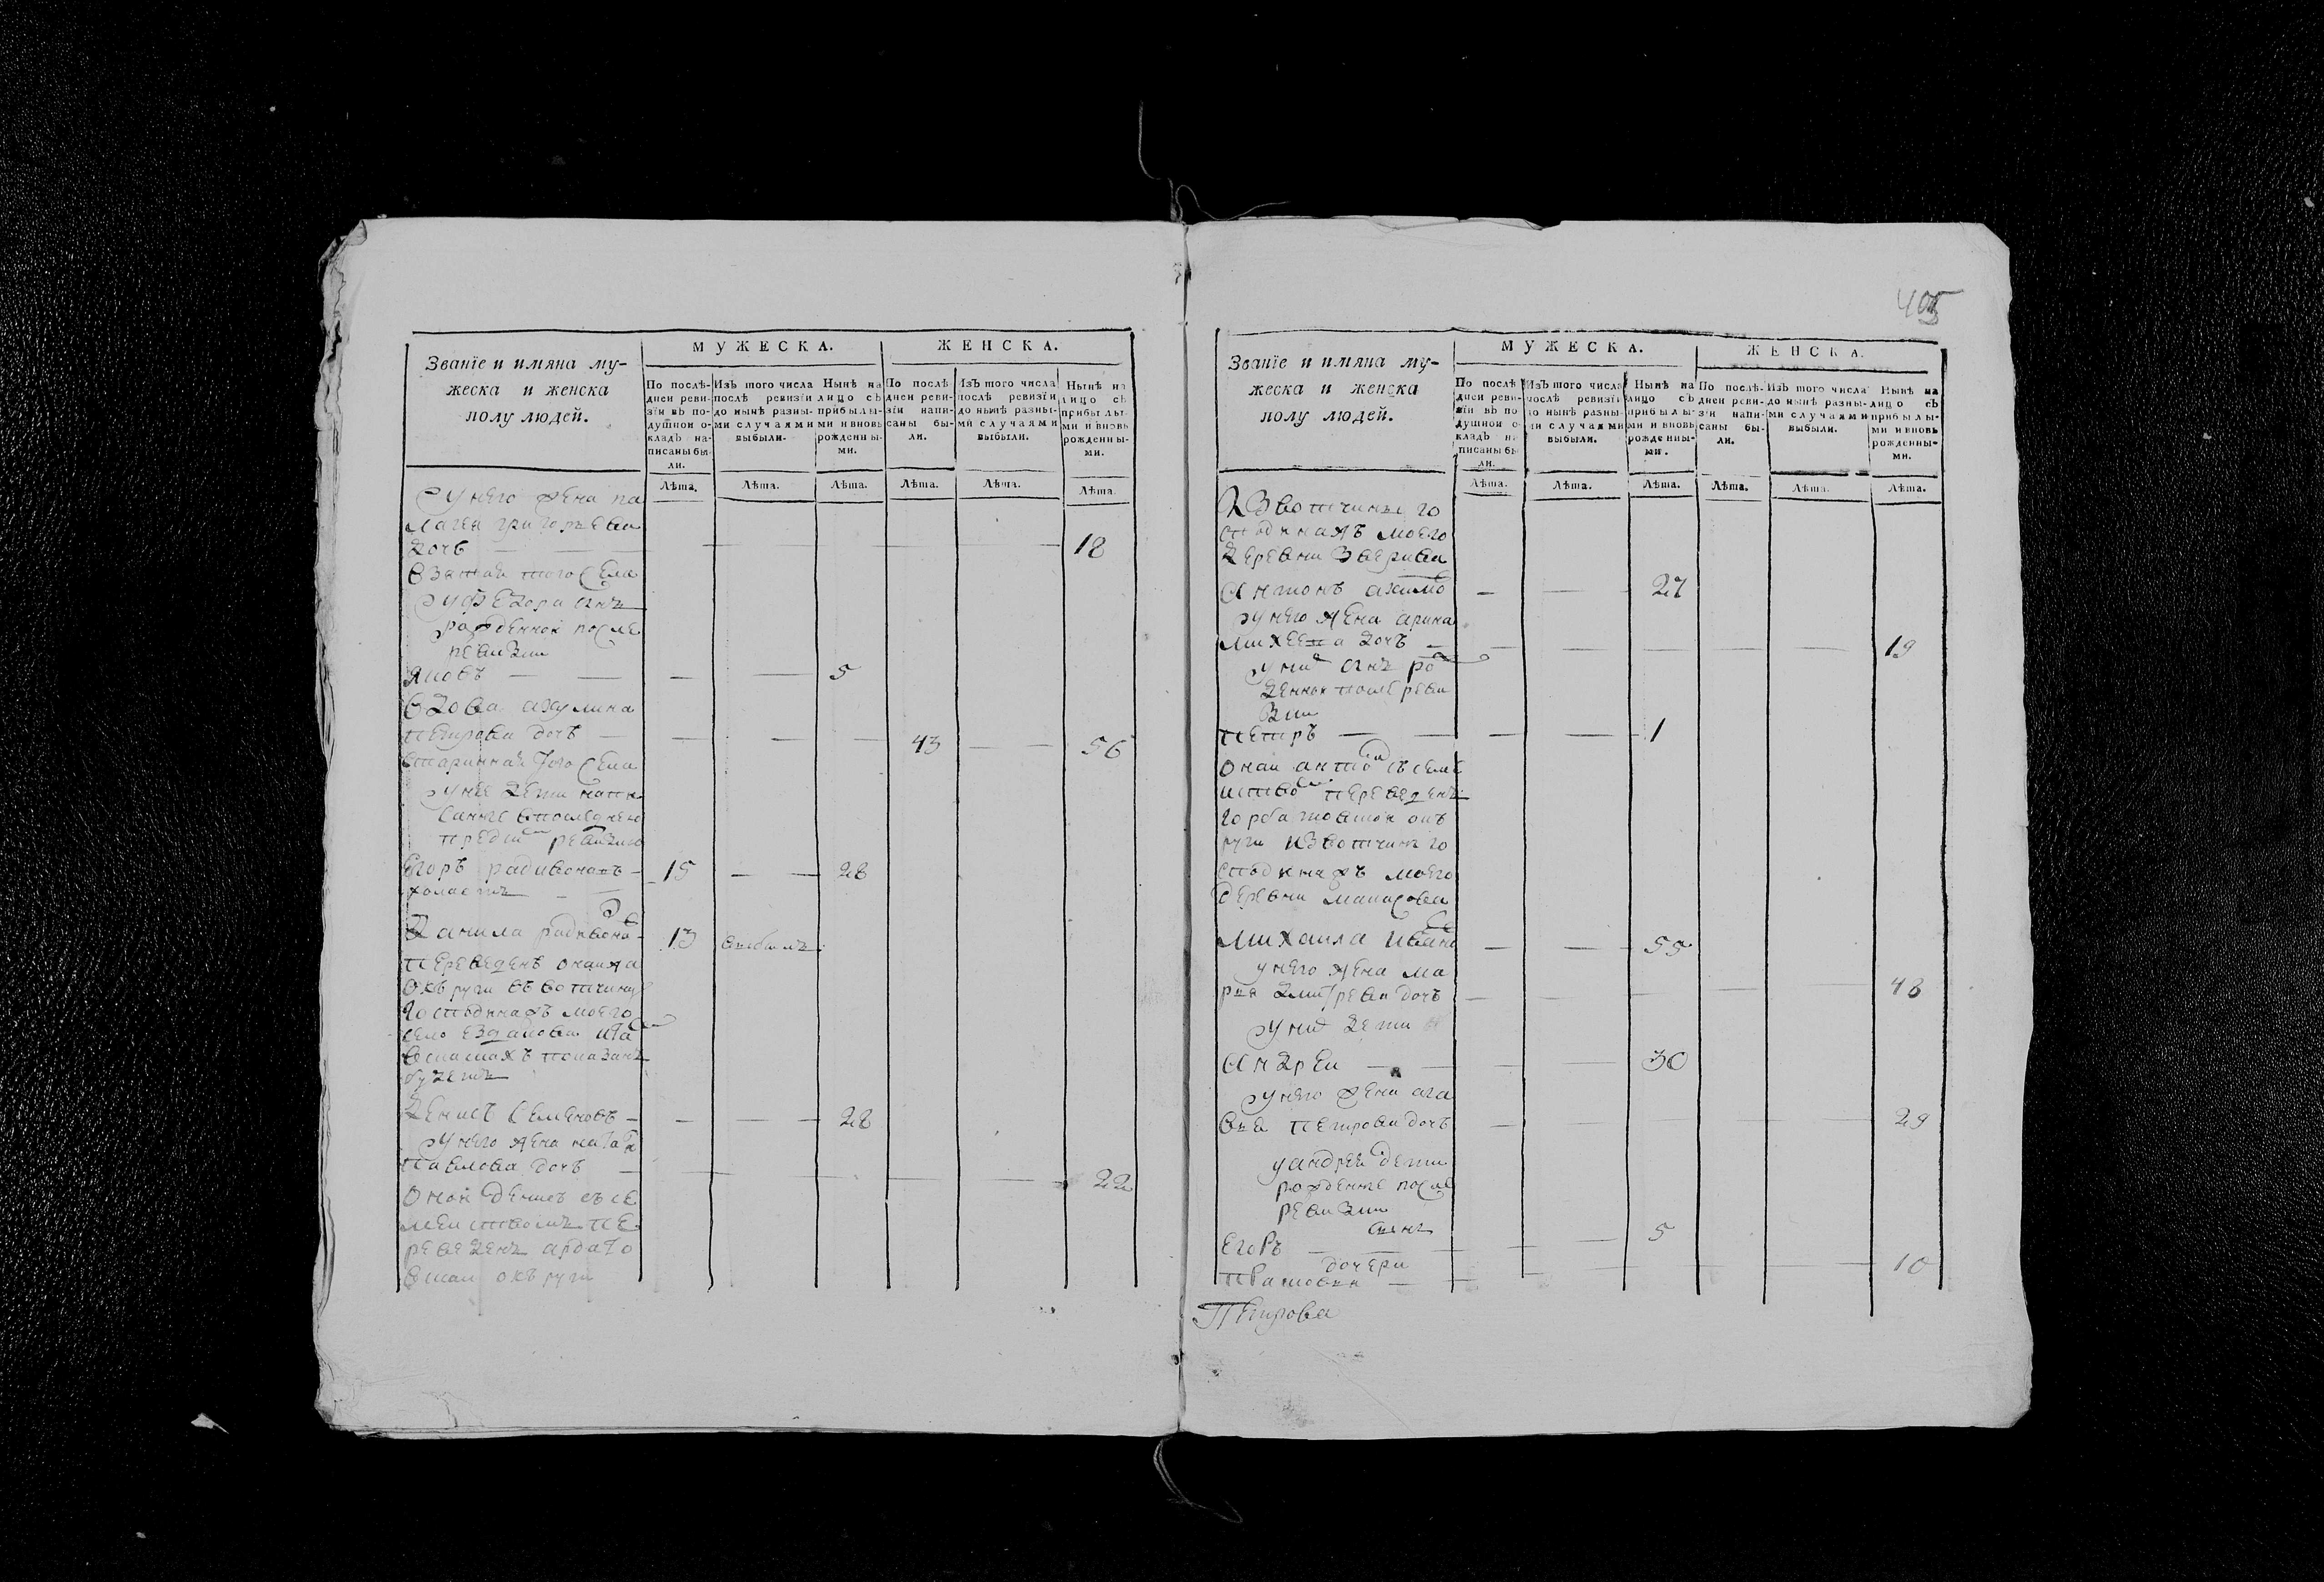 Званїе и имяна му-
жеска и женска
полу людей.
МУЖЕСКА.
ЖЕНСКА.
По послѣ-
дней реви-
зїи въ по-
душной о-
кладъ на-
писаны бы-
ли.
Изъ того числа
послѣ ревизїи
до нынѣ разны-
ми случаями
выбыли.
Нынѣ на
лицо съ
прибылы-
ми и вновь
рожденны-
ми.
По послѣ
дней реви-
зїи напи-
саны бы-
ли.
Изъ того числа
послѣ ревизїи
до нынѣ разны-
ми случаями
выбыли.
Нынѣ на
лицо съ
прибылы-
ми и вновь
рожденны-
ми.
Лѣта. Лѣта. Лѣта. Лѣта. Лѣта. Лѣта.
у него жена па
лагея григорьева
дочь — 18
взятая того села
у федора сынъ
рожденной после
ревизии
яковъ — 5
вдова акулина
петрова дочь — 43 — 56
старинная того села
у нее дети напи
санные в последнею
пред сим ревизию
Егоръ радивоновъ - 15 — 28
холастъ
Данила радивоновъ 13 выбылъ
переведенъ
округи въ вотчину
господина жъ моего
село
в сказкахъ показанъ
будетъ
Денисъ семеновъ — 28
у него жена
павлова дочь — 22
оной денисъ съ се
меиствомъ пе
реведенъ ардато
вскаи округи
405
Званїе и имяна му-
жеска и женска
полу людей.
МУЖЕСКА.
ЖЕНСКА.
По послѣ
дней реви-
зїи въ по
душной о
кладъ на
писаны бы
ли.
Изъ того числа
послѣ ревизїи
до нынѣ разны-
ми случаями
выбыли.
Нынѣ на
лицо съ
прибылы-
ми и вновь
рожденны-
ми.
По послѣ-
дней реви-
зїи напи-
саны бы-
ли.
Изъ того числа
до нынѣ разны-
ми случаями
выбыли.
Нынѣ на
лицо съ
прибылы-
ми и вновь
рожденны-
ми.
Лѣта. Лѣта. Лѣта. Лѣта. Лѣта. Лѣта.
Из вотчины го
сподина жъ моего
деревни
антонъ — 27
у него жена арина
михеева дочь — 19
у них сынъ рож
денной после реви
зии
петръ — 1
онаи антон съ семе
иством переведенъ
горбатовской окъ
руги из вотчины го
сподина жъ моего
деревни
михаила Иванов — 55
у него жена ма
рья дмитрева дочь — 48
у них дети
андреи — 30
у него жена ага
петрова дочь — 29
у андрея дети
рожденные после
ревизии
сынъ
Егоръ — 5
дочери
прасковья — 10
Петрова